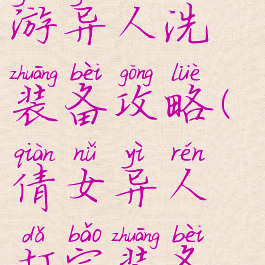 游异人洗
zhuāng bèi gōng lüè
装备攻略(
qiàn nǚ yì rén
倩女异人
dǎ bǎo zhuāng bèi
打宝装备